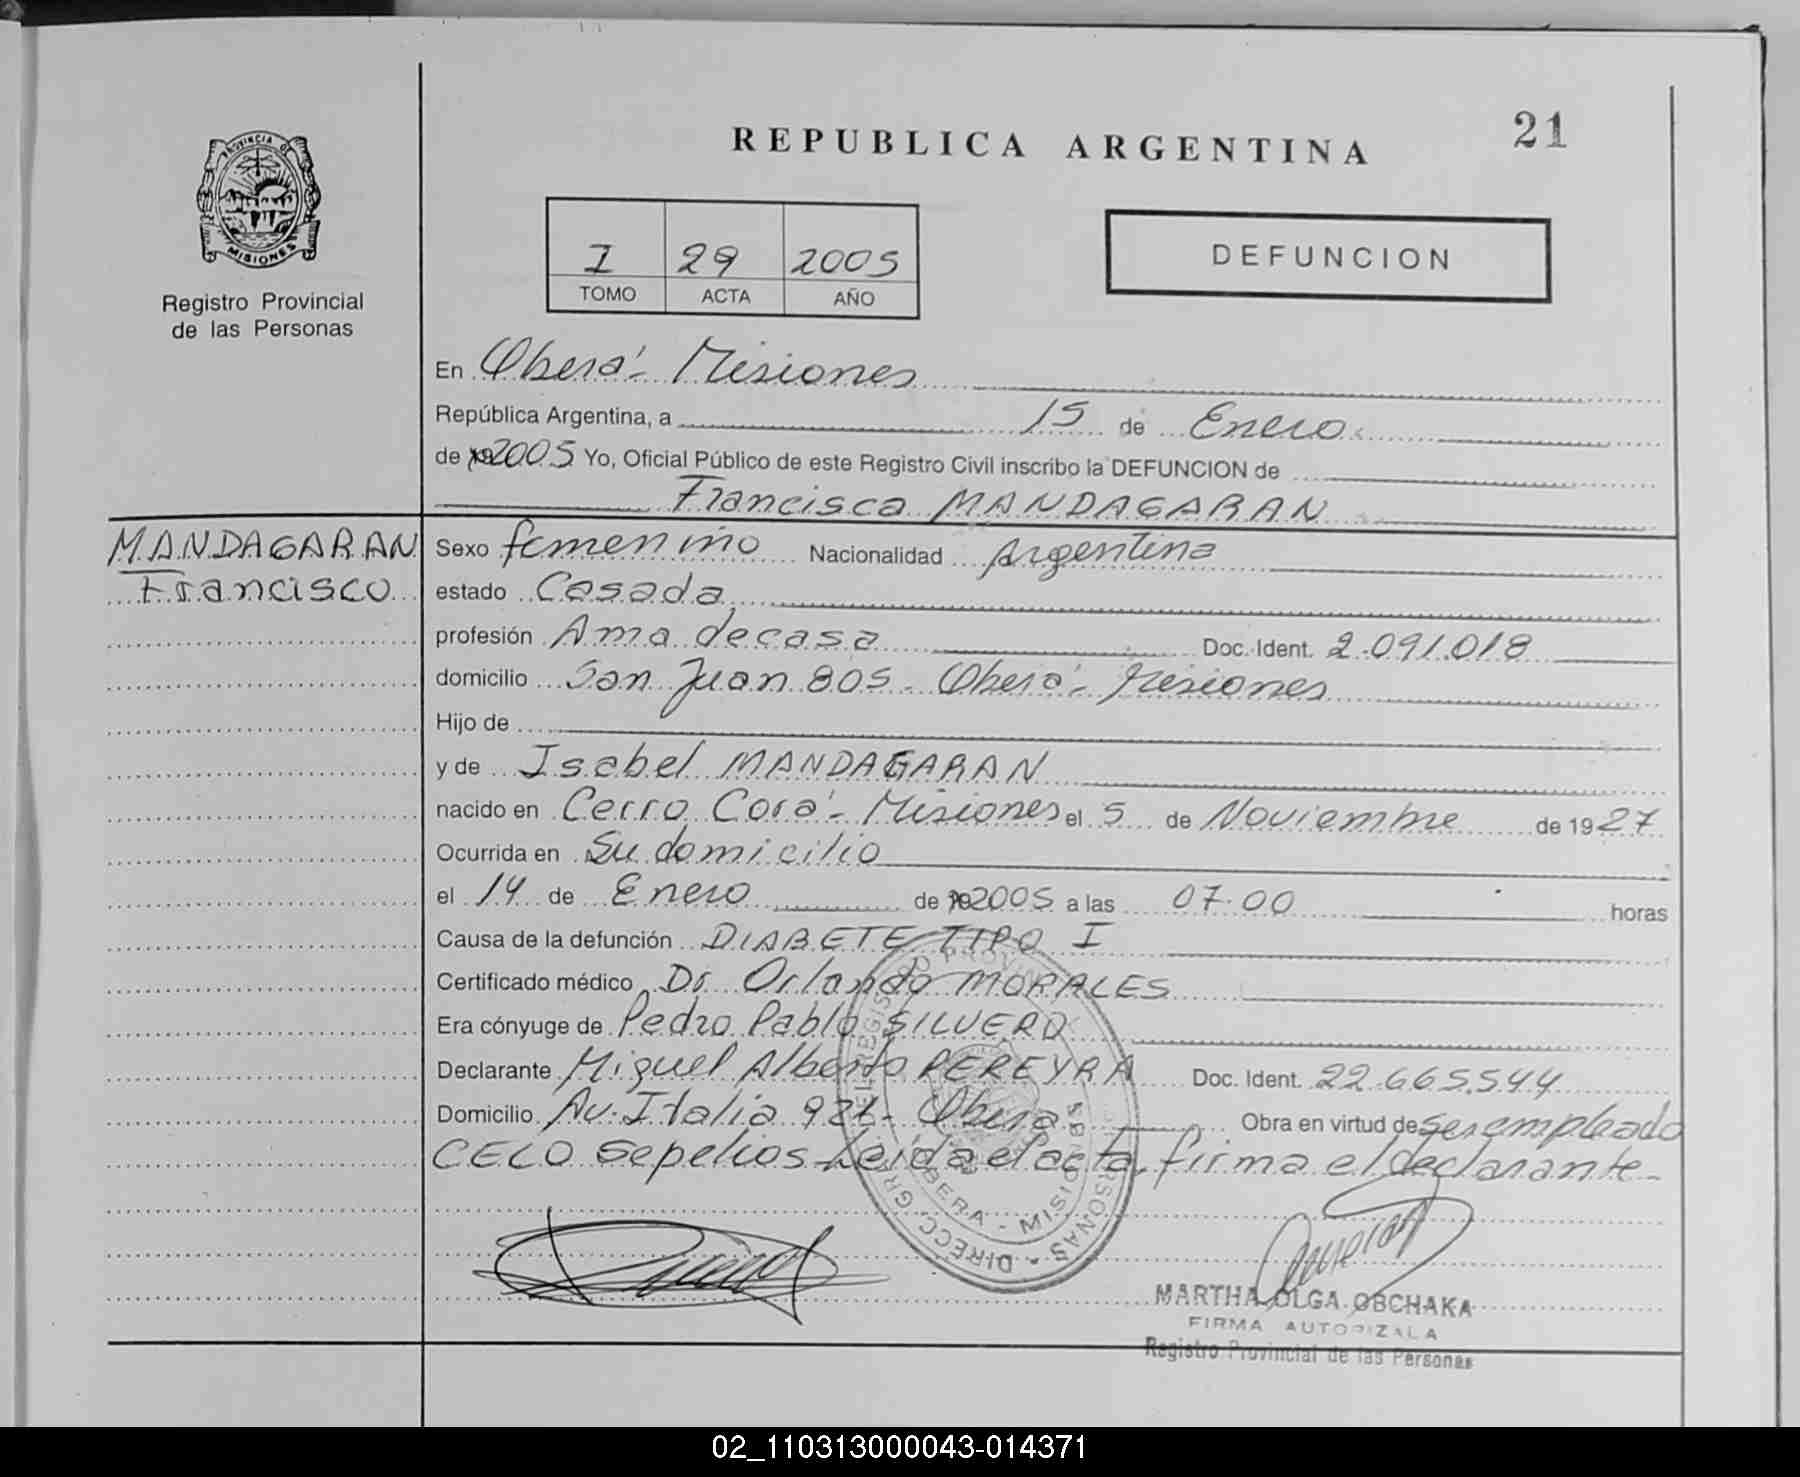 21
REPUBLICA ARGENTINA
PROVINCIA DE
MISIONES
Registro Provincial
de las Personas
I 29 2005
TOMO ACTA AÑO
DEFUNCION
En Oberá - Misiones
República Argentina, a 15 de Enero
de 2005 Yo, Oficial Público de este Registro Civil inscribo la DEFUNCION de
Francisca MANDAGARAN
MANDAGARAN
Francisco
Sexo femenino Nacionalidad Argentina
estado Casada
profesión Ama de casa Doc. Ident. 2.091.018
domicilio San Juan 805 - Oberá - Misiones
Hijo de
y de Isabel MANDAGARAN
nacido en Cerro Corá - Misiones el 5 de Noviembre de 1927
Ocurrida en Su domicilio
el 14 de Enero de 2005 a las 07.00 horas
Causa de la defunción DIABETE TIPO I
Certificado médico Dr. Orlando MORALES
Era cónyuge de Pedro Pablo SILVERO
Declarante Miguel Alberto PEREYRA Doc. Ident. 22.665.544
Domicilio Av. Italia 921 - Oberá Obra en virtud de ser empleado
CELO Sepelios - Leída el acta, firma el declarante -
OBERA - MISIONES
MARTHA OLGA OBCHAKA
FIRMA AUTORIZADA
Registro Provincial de las Personas
02_110313000043-014371